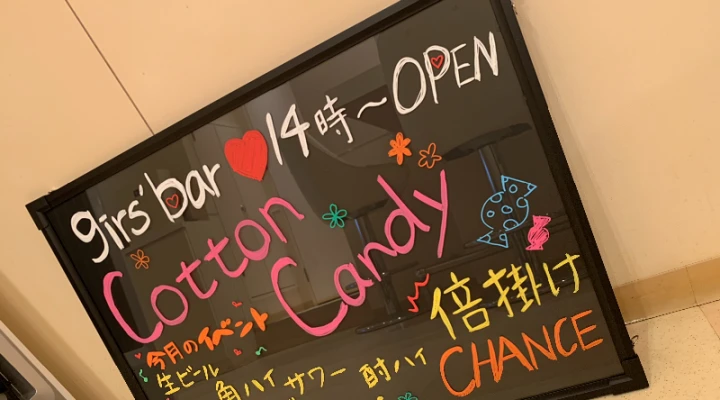 girs' bar ♥ 14時～OPEN
Cotton
Candy
今月のイベント
倍掛け
CHANCE
生ビール 角ハイ サワー 酎ハイ